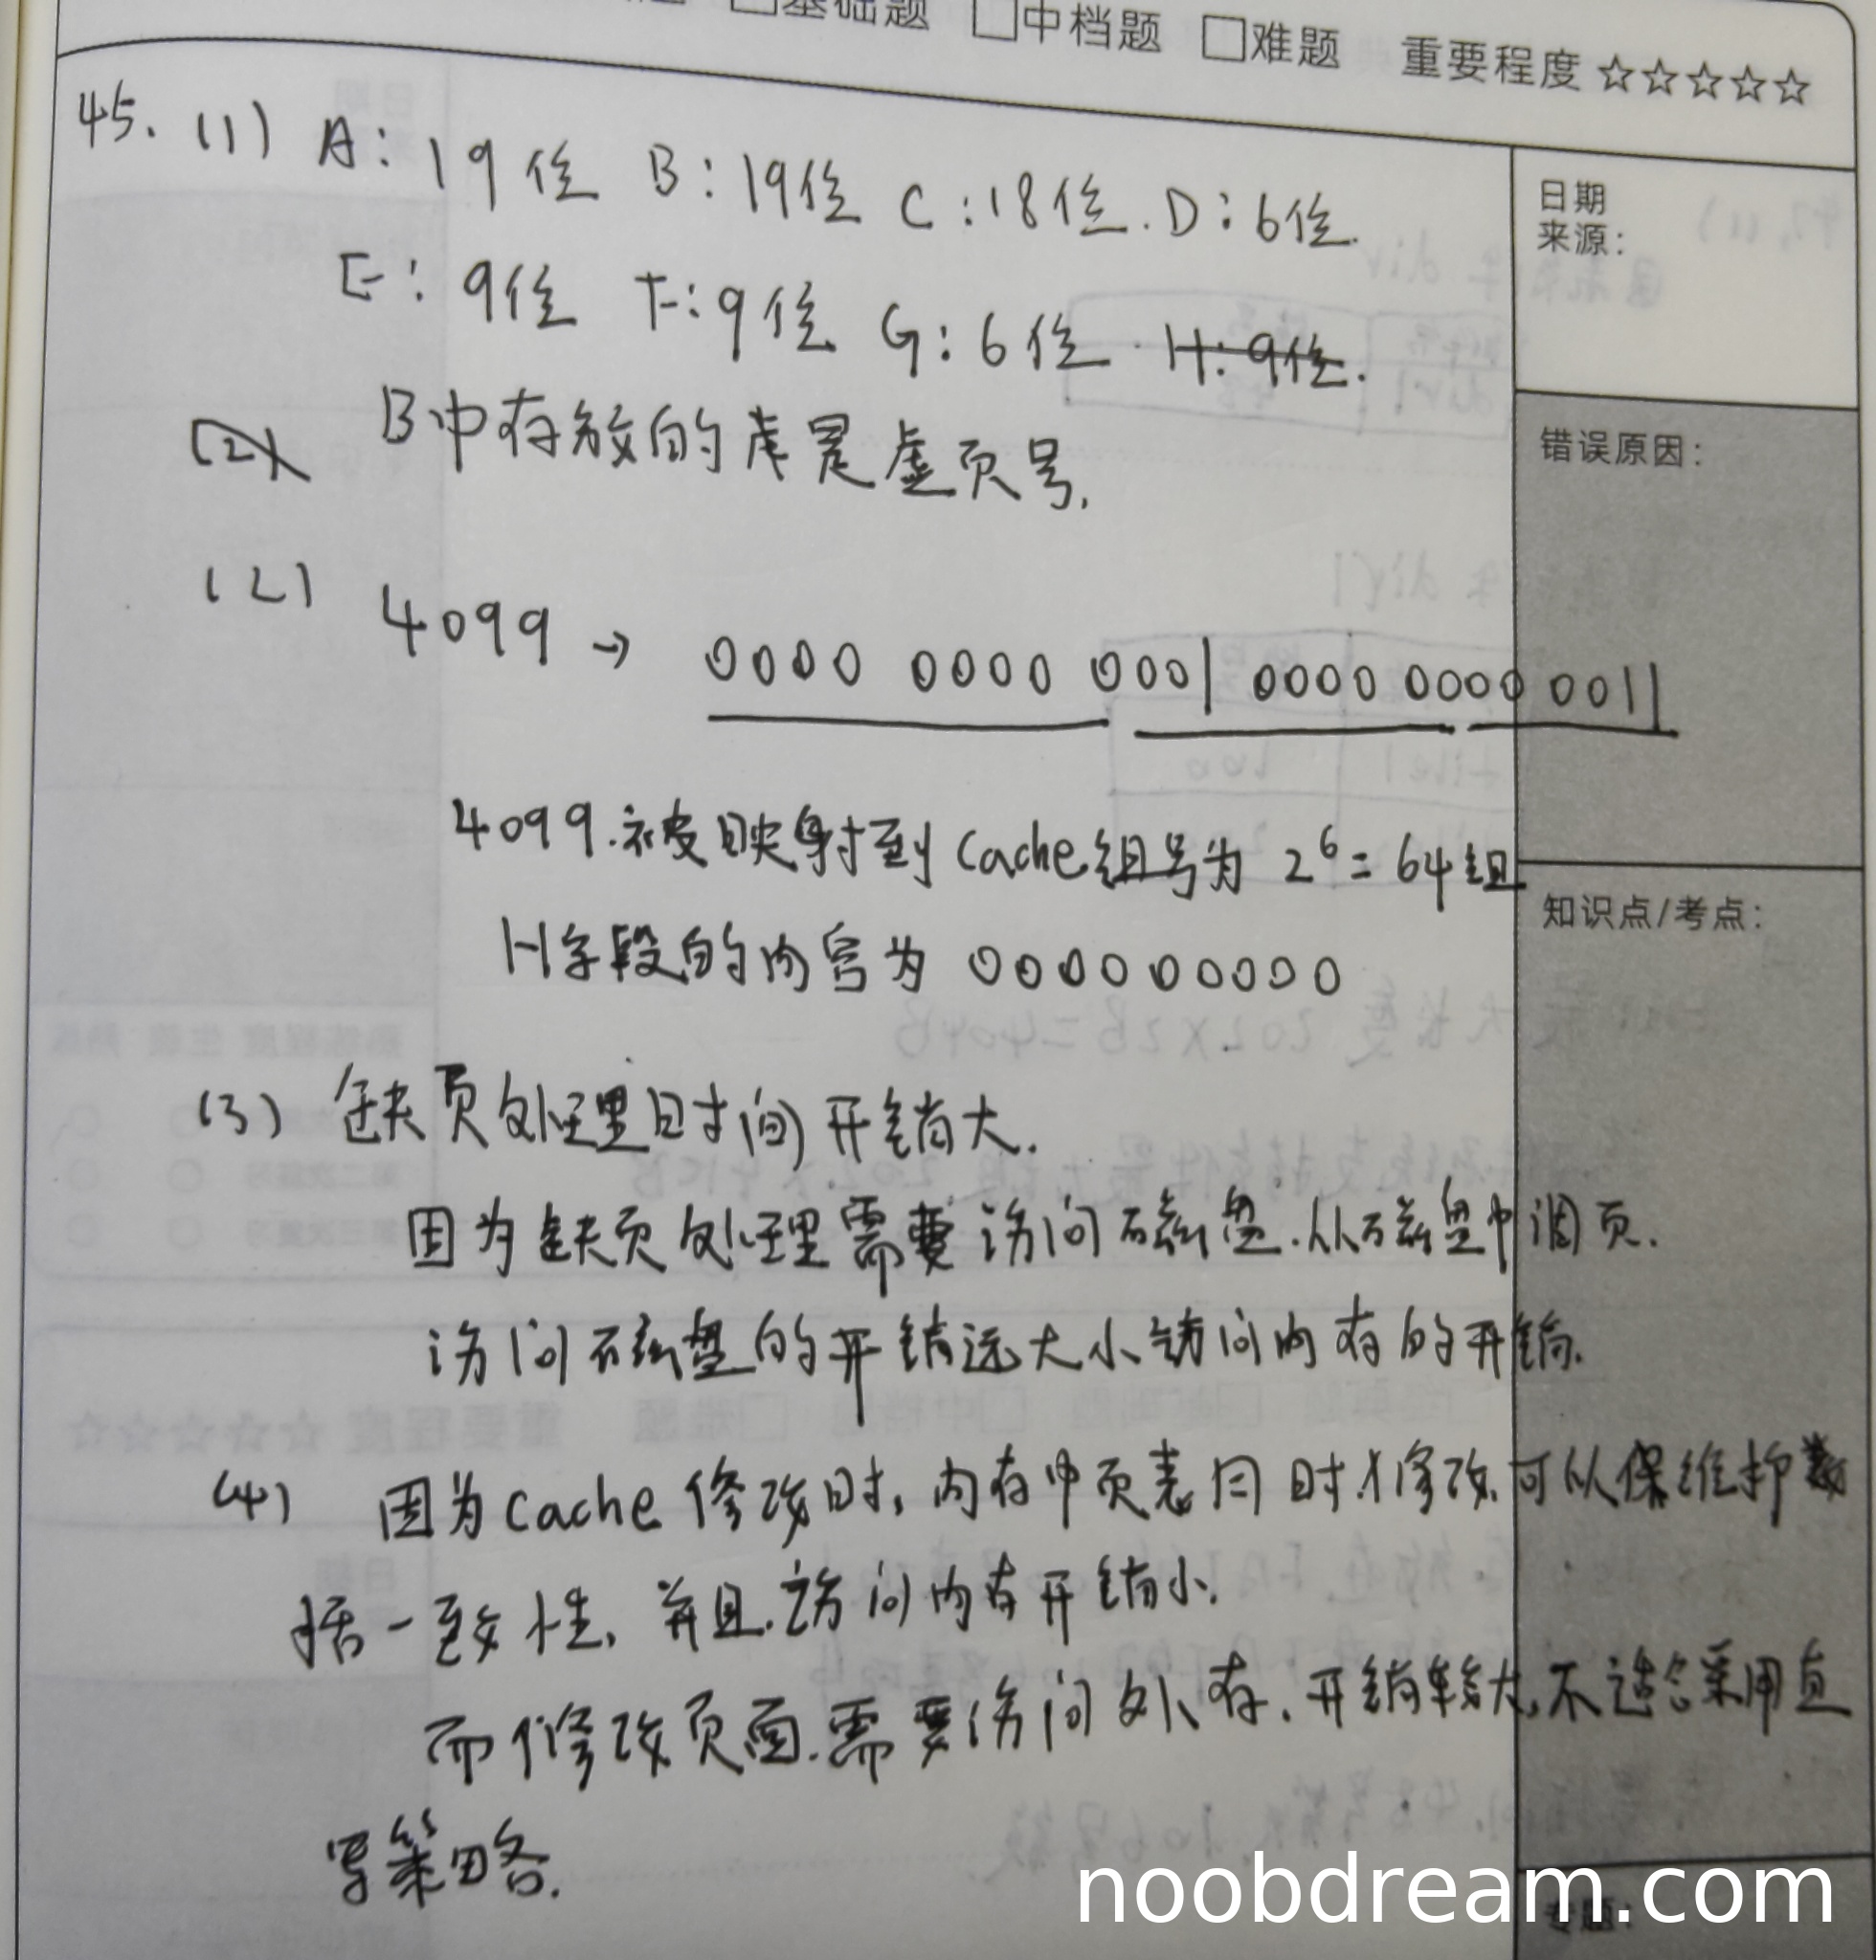 □基础题 □中档题 □难题 重要程度 ☆☆☆☆☆
日期
来源：
45. (1) A：19位 B：19位 C：18位. D：6位.
E：9位 F：9位 G：6位. H：9位.
(2) B中存放的是虚页号.
错误原因：
(2) 4099 → 0000 0000 0001 0000 0000 0011
4099.被映射到 Cache组号为 2⁶= 64组
知识点/考点：
H字段的内容为 000000000
(3) 缺页处理时间开销大.
因为缺页处理需要访问磁盘.从磁盘中调页.
访问磁盘的开销远大小访问内存的开销.
(4) 因为cache修改时，内存中页表同时修改.可以保维护数
据一致性，并且.访问内存开销小.
而修改页面.需要访问外存.开销较大，不适合采用直
写策略.
专题：
noobdream.com